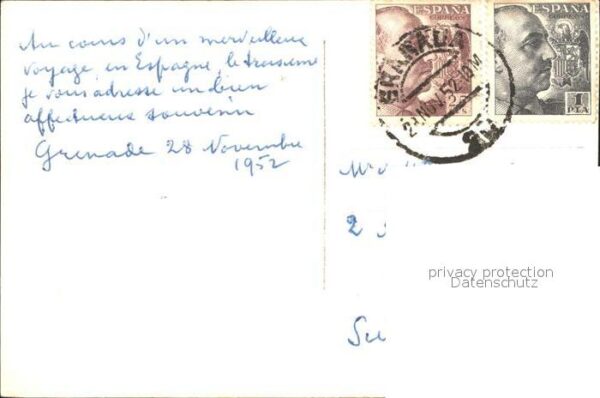 Au cours d'un merveilleux
voyage en Espagne, le troisième
je vous adresse un bien
affectueux souvenir
Grenade 28 Novembre
1952
ESPAÑA
CORREOS
ESPAÑA
CORREOS
1
PTA
GRANADA
NOV 52
2
Su
privacy protection
Datenschutz